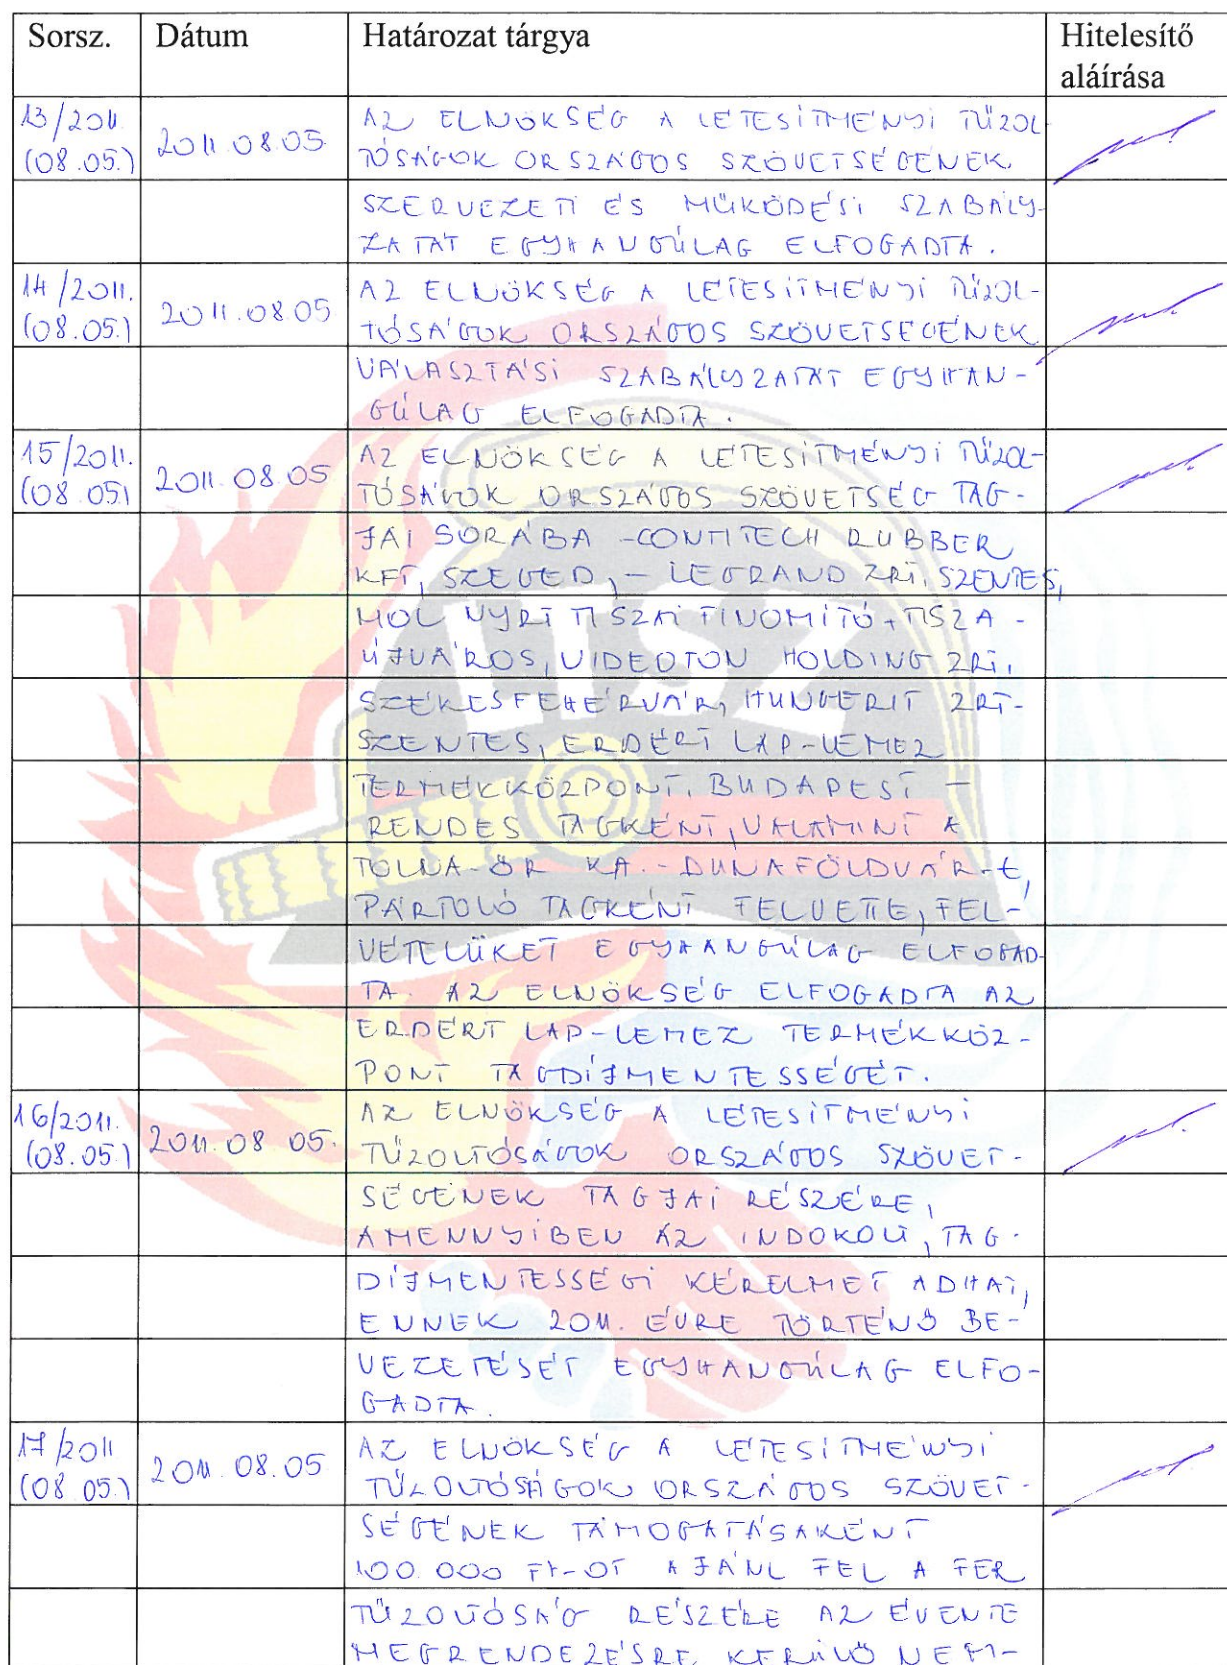 Sorsz. Dátum Határozat tárgya Hitelesítő
aláírása
13/2011 2011.08.05 AZ ELNÖKSÉG A LÉTESÍTMÉNYI TŰZOL
(08.05.) TÓSÁGOK ORSZÁGOS SZÖVETSÉGÉNEK
SZERVEZETI ÉS MŰKÖDÉSI SZABÁLY-
ZATÁT EGYHANGÚLAG ELFOGADTA.
14/2011. 2011.08.05 AZ ELNÖKSÉG A LÉTESÍTMÉNYI TŰZOL-
(08.05.) TÓSÁGOK ORSZÁGOS SZÖVETSÉGÉNEK
VÁLASZTÁSI SZABÁLYZATÁT EGYHAN-
GÚLAG ELFOGADTA.
15/2011. 2011.08.05 AZ ELNÖKSÉG A LÉTESÍTMÉNYI TŰZOL-
(08.05) TÓSÁGOK ORSZÁGOS SZÖVETSÉG TAG-
JAI SORÁBA - CONTITECH RUBBER
KFT, SZEGED, - LEGRAND ZRT. SZENTES,
MOL NYRT TISZAI FINOMÍTÓ - TISZA-
ÚJVÁROS, VIDEOTON HOLDING ZRT,
SZÉKESFEHÉRVÁR, HUNGERIT ZRT-
SZENTES, ERDÉRT LAP-LEMEZ
TERMÉKKÖZPONT. BUDAPEST -
RENDES TAGKÉNT, VALAMINT A
TOLNA-ŐR KA. - DUNAFÖLDVÁR-T,
PÁRTOLÓ TAGKÉNT FELVETTE, FEL-
VÉTELÜKET EGYHANGÚLAG ELFOGAD-
TA. AZ ELNÖKSÉG ELFOGADTA AZ
ERDÉRT LAP-LEMEZ TERMÉKKÖZ-
PONT TAGDÍJMENTESSÉGÉT.
16/2011. 2011.08 05. AZ ELNÖKSÉG A LÉTESÍTMÉNYI
(08.05.) TŰZOLTÓSÁGOK ORSZÁGOS SZÖVET-
SÉGÉNEK TAGJAI RÉSZÉRE,
AMENNYIBEN AZ INDOKOLT, TAG-
DÍJMENTESSÉGI KÉRELMET ADHAT,
ENNEK 2011. ÉVRE TÖRTÉNŐ BE-
VEZETÉSÉT EGYHANGÚLAG ELFO-
GADTA.
17/2011 2011.08.05 AZ ELNÖKSÉG A LÉTESÍTMÉNYI
(08.05.) TŰZOLTÓSÁGOK ORSZÁGOS SZÖVET-
SÉGÉNEK TÁMOGATÁSAKÉNT
100.000 Ft-OT AJÁNL FEL A FER
TŰZOLTÓSÁG RÉSZÉRE AZ ÉVENTE
MEGRENDEZÉSRE KERÜLŐ NEM-